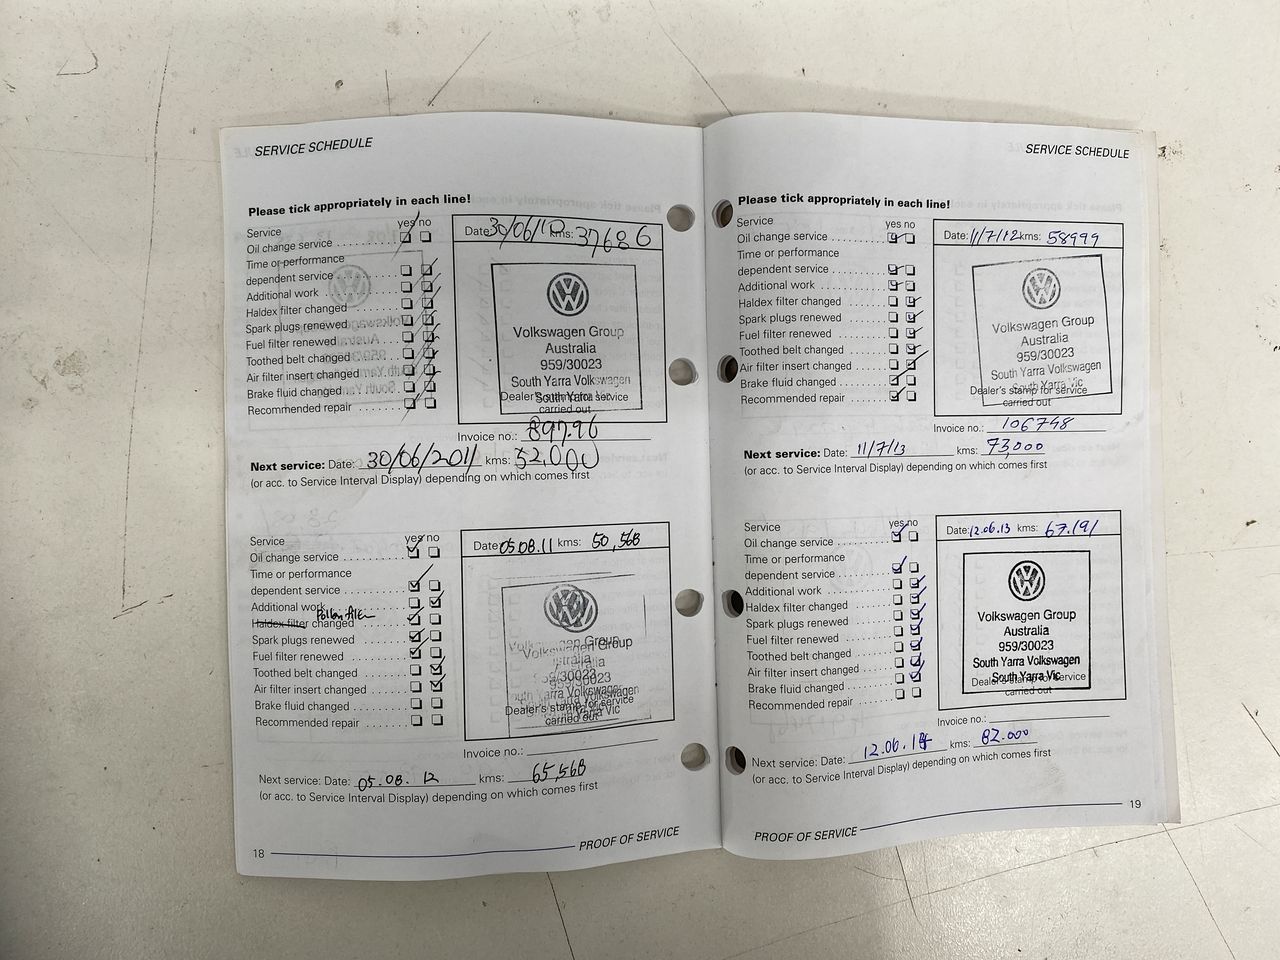 SERVICE SCHEDULE
Please tick appropriately in each line!
Service
yes no
Oil change service
Time or performance
dependent service
Additional work
Haldex filter changed
Spark plugs renewed
Fuel filter renewed
Toothed belt changed
Air filter insert changed
Brake fluid changed
Recommended repair
Date: 30/06/10 kms: 37686
Volkswagen Group
Australia
959/30023
South Yarra Volkswagen
South Yarra
Dealer's stamp for service
carried out
Invoice no.: 89796
Next service: Date: 30/06/2011 kms: 52,000
(or acc. to Service Interval Display) depending on which comes first
Service
yes no
Oil change service
Time or performance
dependent service
Additional work
Pollen filter
Haldex filter changed
Spark plugs renewed
Fuel filter renewed
Toothed belt changed
Air filter insert changed
Brake fluid changed
Recommended repair
Date: 05.08.11 kms: 50,568
Volkswagen Group
Australia
959/30023
South Yarra Volkswagen
South Yarra Vic
Dealer's stamp for service
carried out
Invoice no.:
Next service: Date: 05.08.12 kms: 65,568
(or acc. to Service Interval Display) depending on which comes first
PROOF OF SERVICE
18
SERVICE SCHEDULE
Please tick appropriately in each line!
Service
yes no
Oil change service
Time or performance
dependent service
Additional work
Haldex filter changed
Spark plugs renewed
Fuel filter renewed
Toothed belt changed
Air filter insert changed
Brake fluid changed
Recommended repair
Date: 11/7/12 kms: 58999
Volkswagen Group
Australia
959/30023
South Yarra Volkswagen
South Yarra Vic
Dealer's stamp for service
carried out
Invoice no.: 106748
Next service: Date: 11/7/13 kms: 73,000
(or acc. to Service Interval Display) depending on which comes first
Service
yes no
Oil change service
Time or performance
dependent service
Additional work
Haldex filter changed
Spark plugs renewed
Fuel filter renewed
Toothed belt changed
Air filter insert changed
Brake fluid changed
Recommended repair
Date: 12.06.13 kms: 67.191
Volkswagen Group
Australia
959/30023
South Yarra Volkswagen
South Yarra Vic
Dealer's stamp for service
carried out
Invoice no.:
Next service: Date: 12.06.14 kms: 82.000
(or acc. to Service Interval Display) depending on which comes first
PROOF OF SERVICE
19